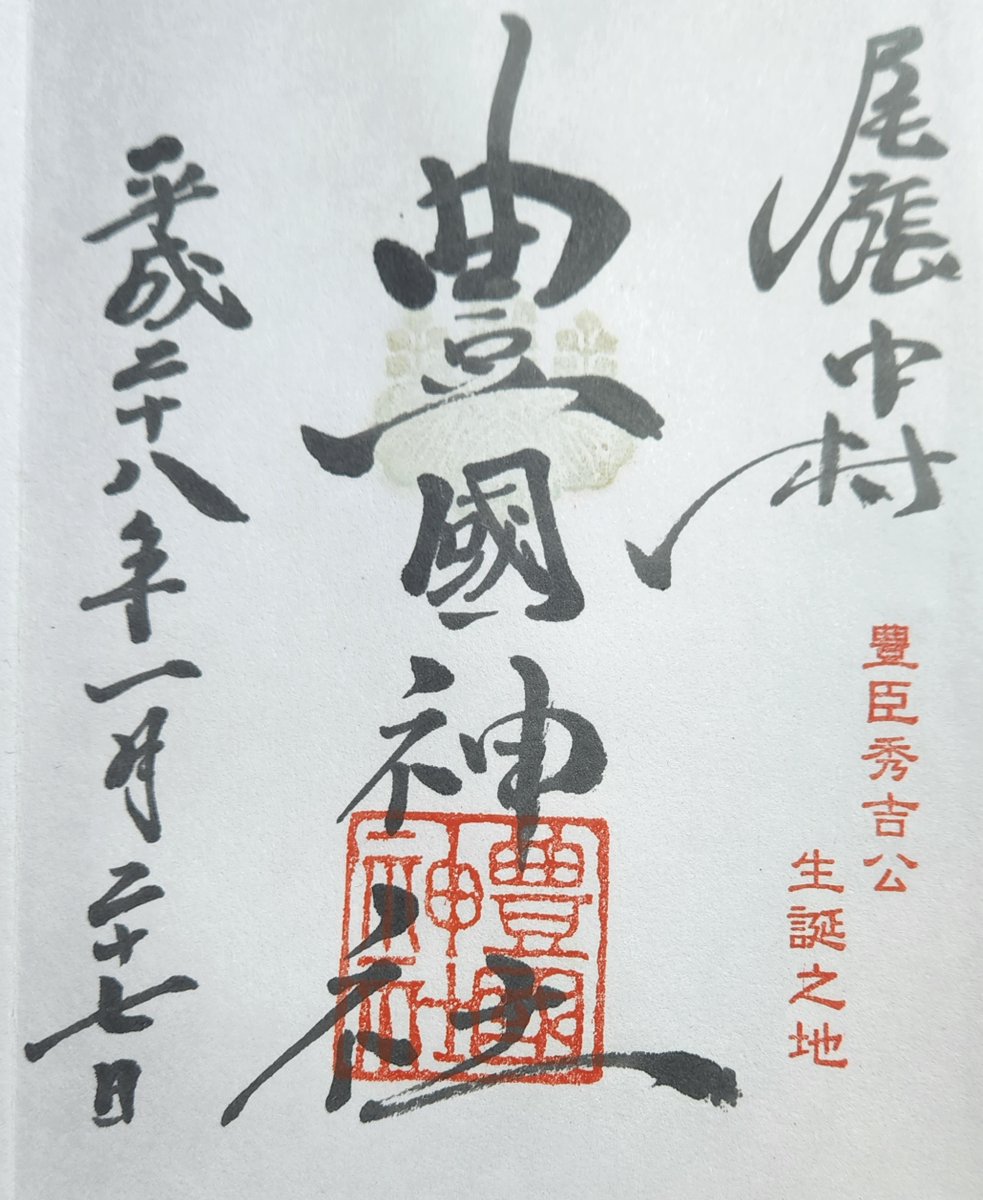 尾張中村
豐臣秀吉公
生誕之地
豐國神社
豐國神社
平成二十八年一月二十七日